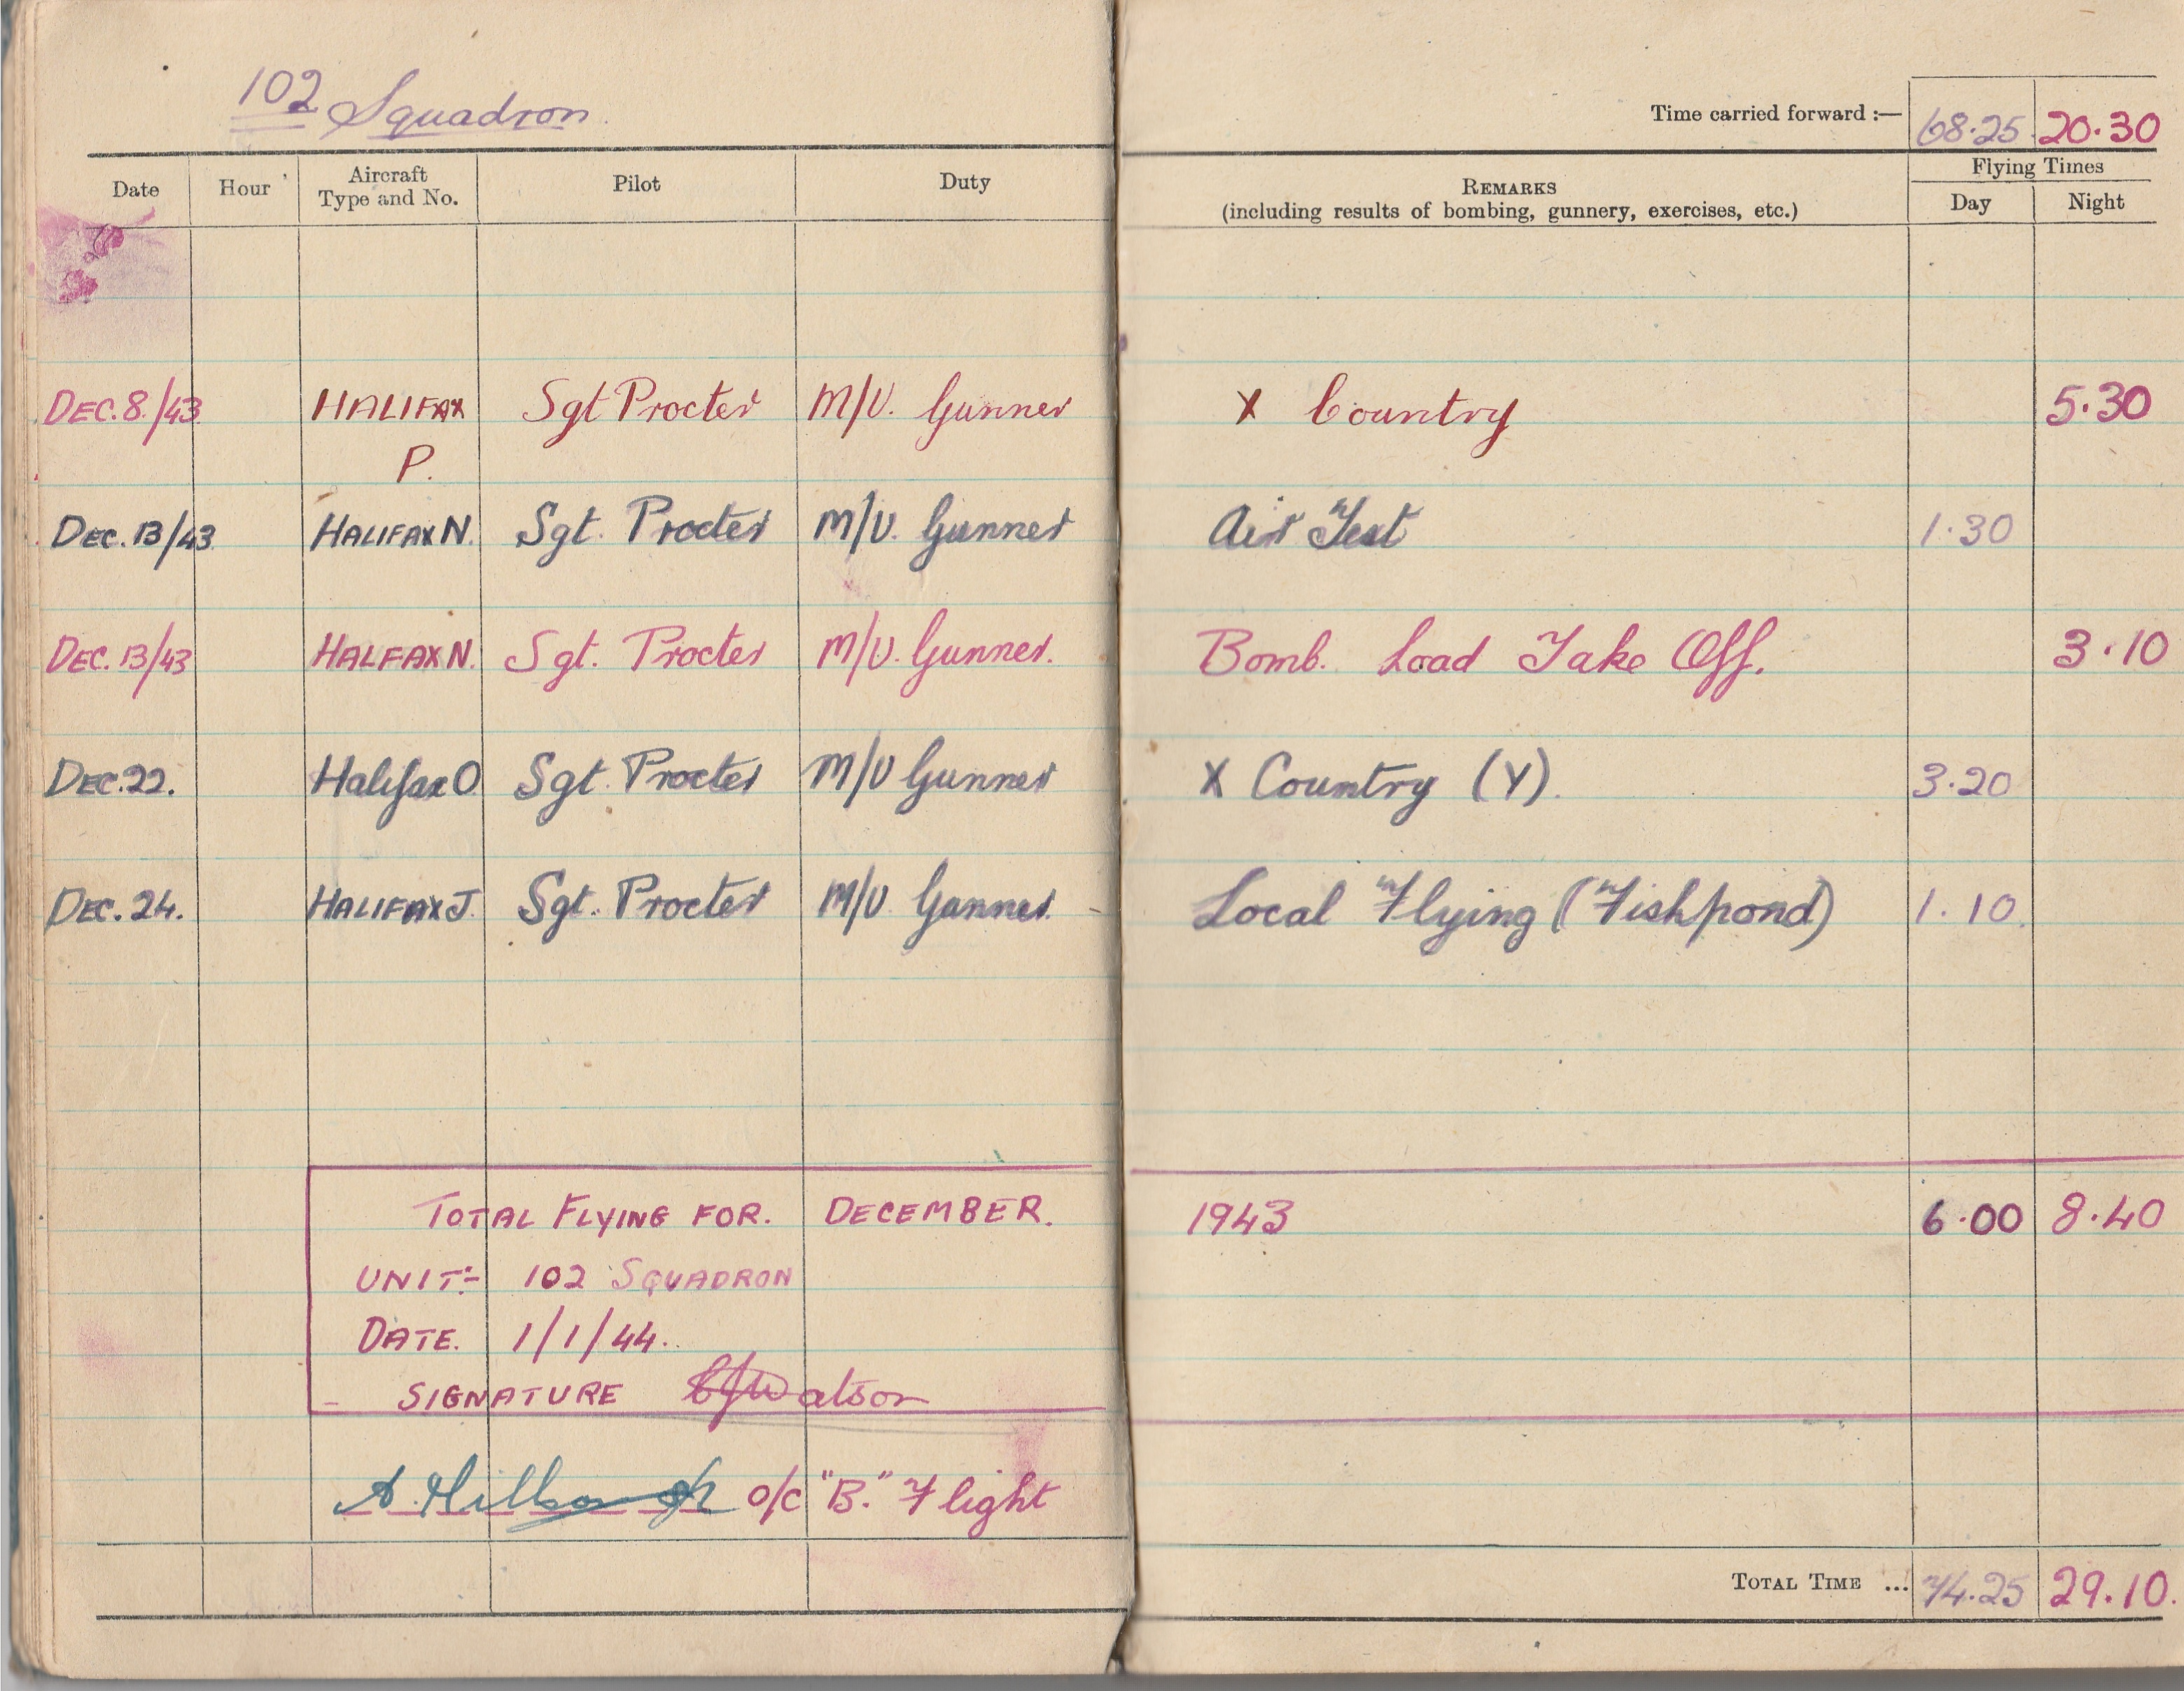 102 Squadron
Time carried forward :— 68.25 20.30
Date Hour Aircraft Type and No. Pilot Duty REMARKS (including results of bombing, gunnery, exercises, etc.) Flying Times Day Night
DEC. 8./43 HALIFAX P. Sgt Procter M/U. Gunner X Country 5.30
DEC. 13/43 HALIFAX N. Sgt. Procter M/U. Gunner Air Test 1.30
DEC. 13/43 HALFAX N. Sgt. Procter M/U. Gunner. Bomb. Load Take Off. 3.10
DEC. 22. Halifax O Sgt. Procter M/U Gunner X Country (Y). 3.20
DEC. 24. HALIFAX J. Sgt. Procter M/U Gunner. Local Flying (Fishpond) 1.10.
TOTAL FLYING FOR. DECEMBER. 1943 6.00 8.40
UNIT:- 102 SQUADRON
DATE. 1/1/44.
SIGNATURE Watson
O/C "B." Flight
TOTAL TIME ... 74.25 29.10.